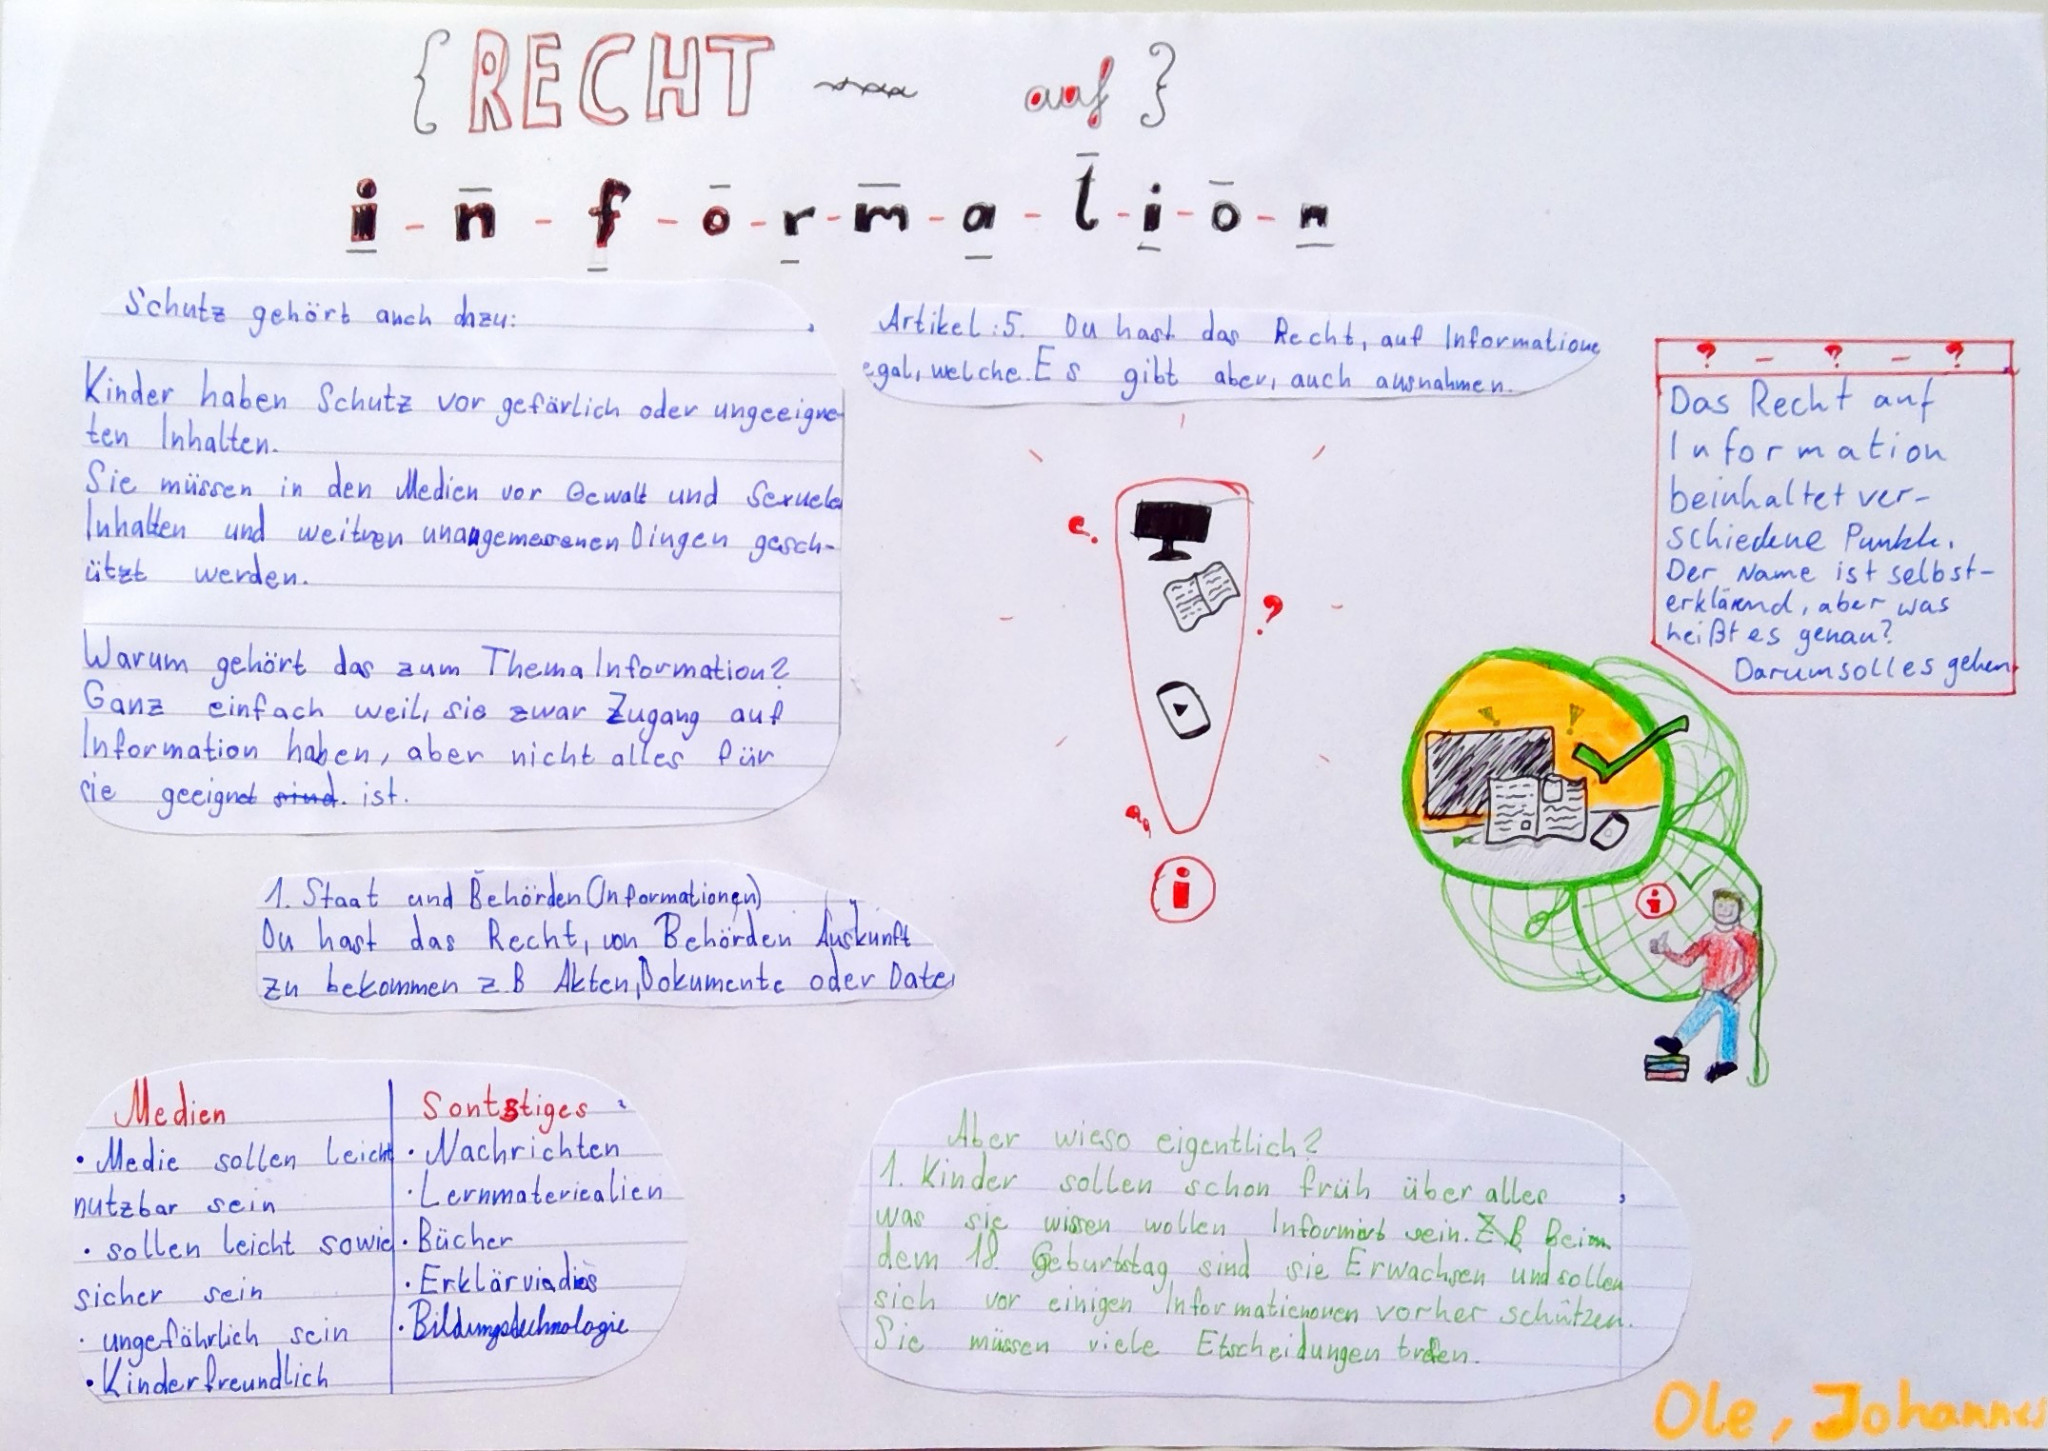 {RECHT auf}
i-n-f-o-r-m-a-t-i-o-n
Schutz gehört auch dazu:
Kinder haben Schutz vor gefärlich oder ungeeigne-
ten Inhalten.
Sie müssen in den Medien vor Gewalt und Sexuele
Inhalten und weitren unangemessenen Dingen gesch-
ützt werden.
Warum gehört das zum Thema Information?
Ganz einfach weil, sie zwar Zugang auf
Information haben, aber nicht alles für
sie geeignet sind. ist.
Artikel: 5. Du hast das Recht, auf Informatione
egal, welche. Es gibt aber, auch ausnahmen.
? - ? - ?
Das Recht auf
Information
beinhaltet ver-
schiedene Punkte.
Der Name ist selbst-
erklärend, aber was
heißt es genau?
Darum soll es gehen
?
i
i
1. Staat und Behörden (Informationen)
Du hast das Recht, von Behörden Auskunft
zu bekommen z.B Akten, Dokumente oder Daten
Medien
• Medie sollen leicht
nutzbar sein
• sollen leicht sowie
sicher sein
• ungefährlich sein
• Kinderfreundlich
Sontstiges
• Nachrichten
• Lernmateriealien
• Bücher
• Erklärviedios
• Bildungstechnologie
Aber wieso eigentlich?
1. Kinder sollen schon früh über alles
was sie wissen wollen Informirt sein. Z.B Beim
dem 18. Geburtstag sind sie Erwachsen und sollen
sich vor einigen vorher schützen.
Sie müssen viele Etscheidungen treffen.
Ole, Johannes